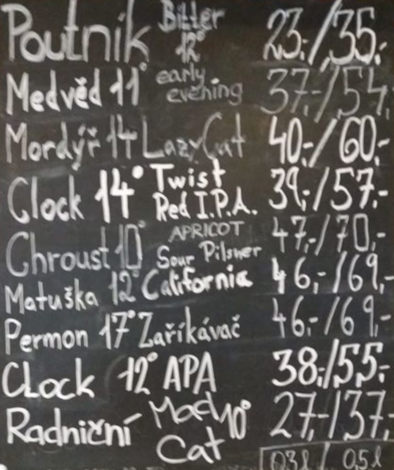 Poutník Bitter 12° 23,-/35,-
Medvěd 11° early evening 37,-/54,-
Mordýř 14 Lazy Cat 40,-/60,-
Clock 14° Twist Red I.P.A. 39,-/57,-
Chroust 10° APRICOT Sour Pilsner 47,-/70,-
Matuška 12° California 46,-/69,-
Permon 17° Zaříkávač 46,-/69,-
CLock 12° APA 38,-/55,-
Radniční Mad Cat 10° 27,-/37,-
0,3l / 0,5l